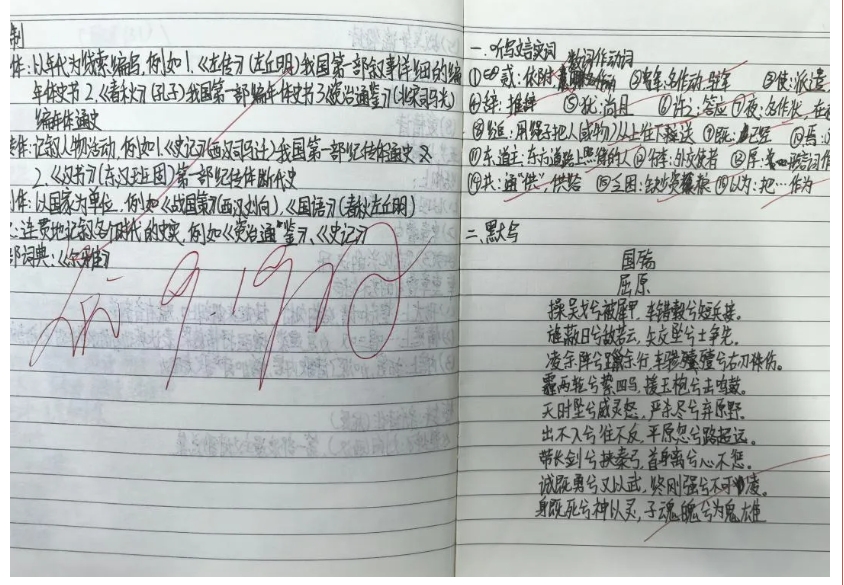 制
体：以年代为线索编写，例如1.《左传》（左丘明）我国第一部叙事详细的编
年体史书 2.《春秋》（孔子）我国第一部编年体史书 3.《资治通鉴》（北宋司马光）
编年体通史
传体：记叙人物活动，例如1.《史记》（西汉司马迁）我国第一部纪传体通史
2.《汉书》（东汉班固）第一部纪传体断代史
别体：以国家为单位，例如《战国策》（西汉刘向）、《国语》（春秋左丘明）
：连贯地记叙各个时代的史实，例如《资治通鉴》、《史记》
部词典：《尔雅》
9.19
一.听写文言实词
数词作动词
①贰：依附 ②军：名作动，驻军 ③使：派遣
④辞：推辞 ⑤犹：尚且 ⑥许之：答应 ⑦夜：名作状，在
⑧缒：用绳子把人（或物）从上往下输送 ⑨既：已经 ⑩焉：
⑪东道主：东方道路上的人 ⑫行李：外交使者 ⑬厚：形容词作
⑭共：通“供”，供给 ⑮乏困：缺少 ⑯以为：把…作为
二.默写
国殇
屈原
操吴戈兮被犀甲，车错毂兮短兵接。
旌蔽日兮敌若云，矢交坠兮士争先。
凌余阵兮躐余行，左骖殪兮右刃殊伤。
霾两轮兮絷四马，援玉枹兮击鸣鼓。
天时坠兮威灵怒，严杀尽兮弃原野。
出不入兮往不反，平原忽兮路超远。
带长剑兮挟秦弓，首身离兮心不惩。
诚既勇兮又以武，终刚强兮不可凌。
身既死兮神以灵，子魂魄兮为鬼雄